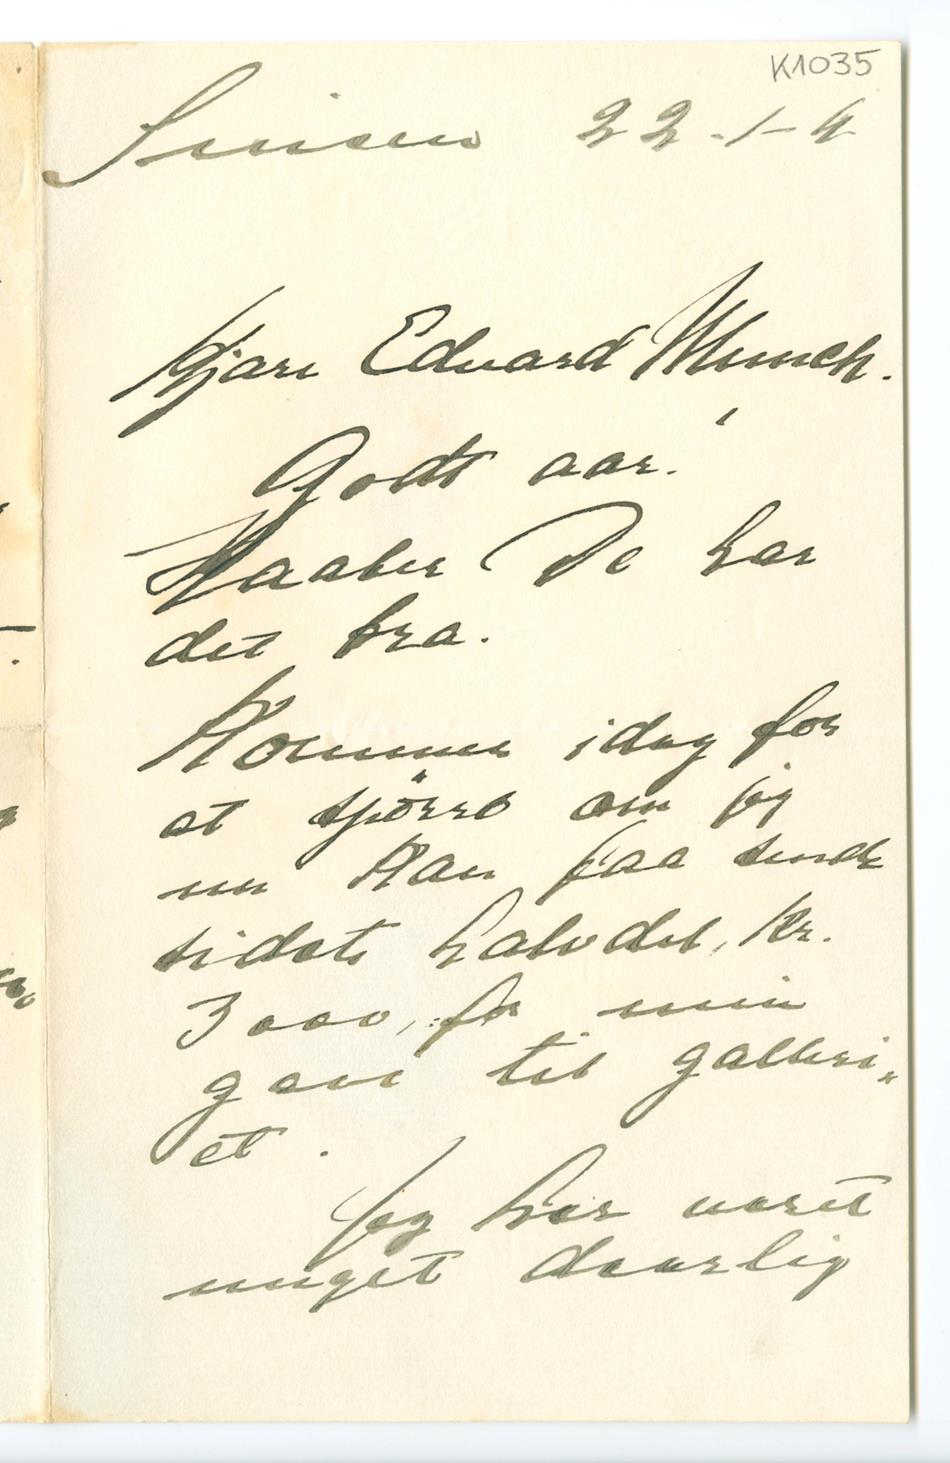 K1035
Sinsen 22-1-4
Kjære Edvard Munch.
Godt aar!
Haaber De har
det bra.
Kommer idag for
at spörre om jeg
nu kan faa sende
sidste halvdel, Kr.
3000, for min
gave til galleri„
et.
Jeg har været
meget daarlig